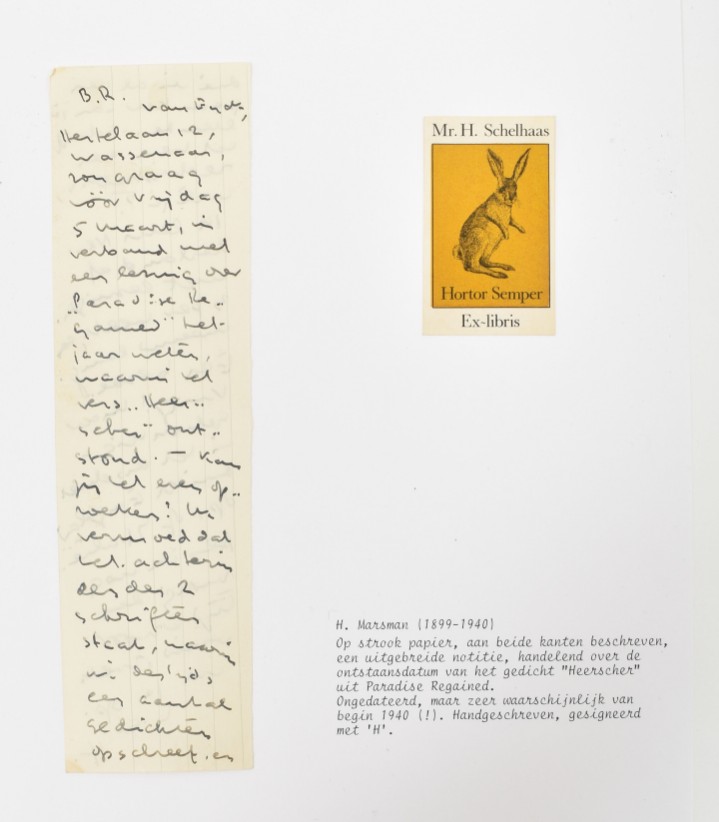 B.R.
van Eyck,
12,
Wassenaar,
zou graag
vóór vrijdag
5 maart, in
verband met
een lezing over
"Paradise Re-
gained" het
jaar weten,
waarin het
vers "Heer-
scher" ont-
stond. – Kan
jij het even op-
zoeken? Ik
vermoed dat
het achterin
een der 2
schriften
staat, waarin
destijds
een aantal
gedichten
opschreef. en
Mr. H. Schelhaas
Hortor Semper
Ex-libris
H. Marsman (1899-1940)
Op strook papier, aan beide kanten beschreven,
een uitgebreide notitie, handelend over de
ontstaansdatum van het gedicht "Heerscher"
uit Paradise Regained.
Ongedateerd, maar zeer waarschijnlijk van
begin 1940 (!). Handgeschreven, gesigneerd
met 'H'.